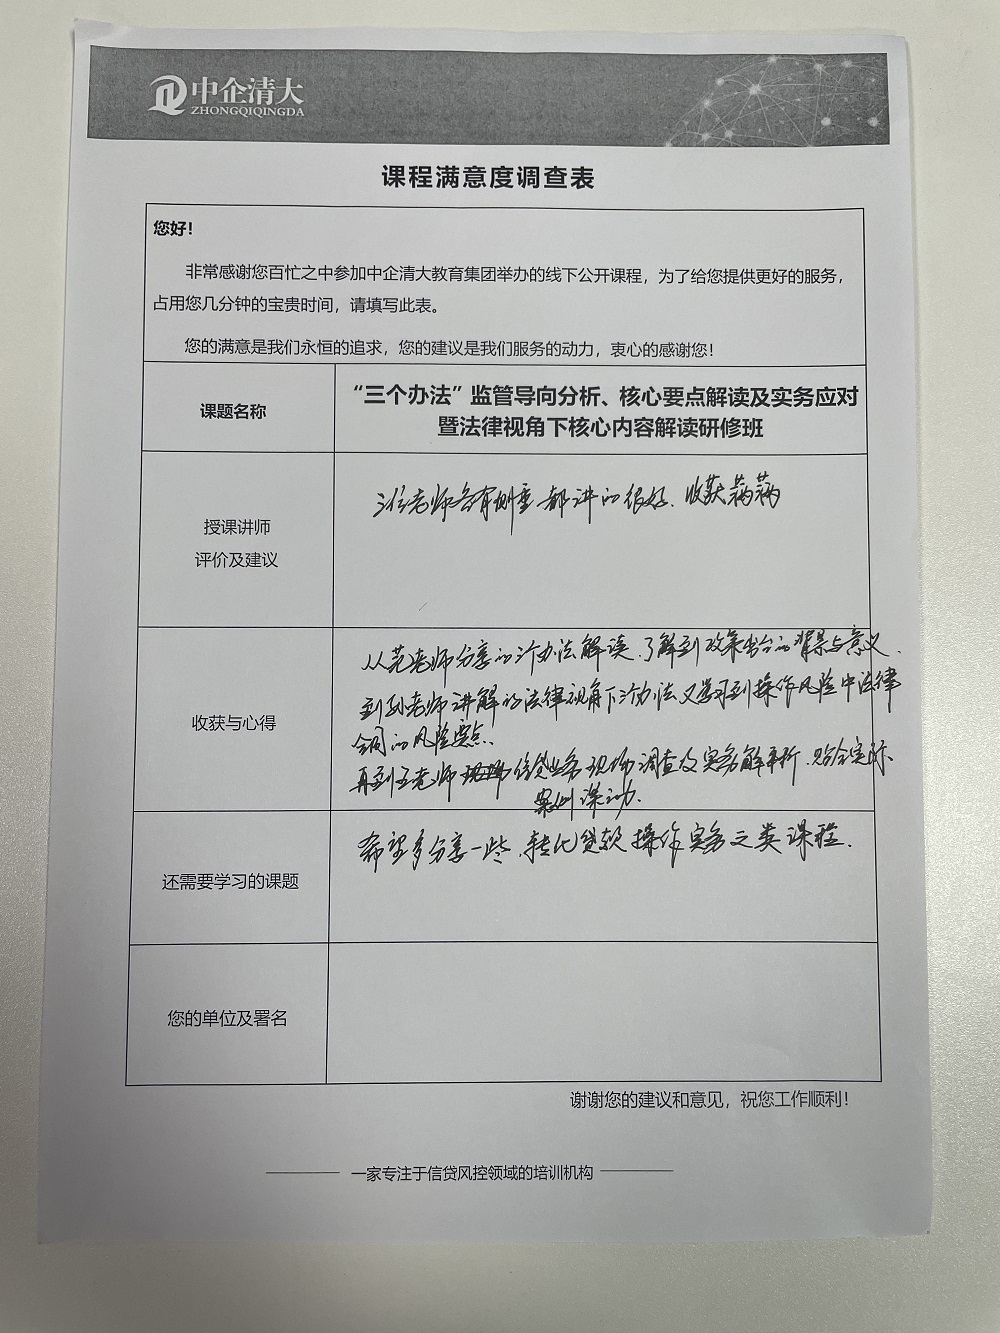 中企清大
ZHONGQIQINGDA
课程满意度调查表
您好！
非常感谢您百忙之中参加中企清大教育集团举办的线下公开课程，为了给您提供更好的服务，
占用您几分钟的宝贵时间，请填写此表。
您的满意是我们永恒的追求，您的建议是我们服务的动力，衷心的感谢您！
课题名称
“三个办法”监管导向分析、核心要点解读及实务应对
暨法律视角下核心内容解读研修班
授课讲师
评价及建议
三位老师各有侧重都讲的很好，收获满满
收获与心得
从范老师分享的三个办法解读，了解到政策出台的背景与意义，
到孙老师讲解的法律视角下三个办法又学习到操作风险中法律
合同的风险要点。
再到王老师信贷业务现场调查及实务解析，贴合实际
案例 生动。
还需要学习的课题
希望多分享一些，转化贷款操作实务之类课程。
您的单位及署名
谢谢您的建议和意见，祝您工作顺利！
一家专注于信贷风控领域的培训机构